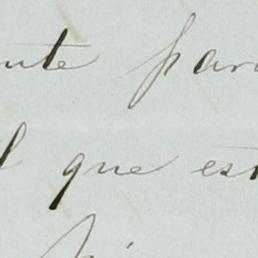 nte para
l que est